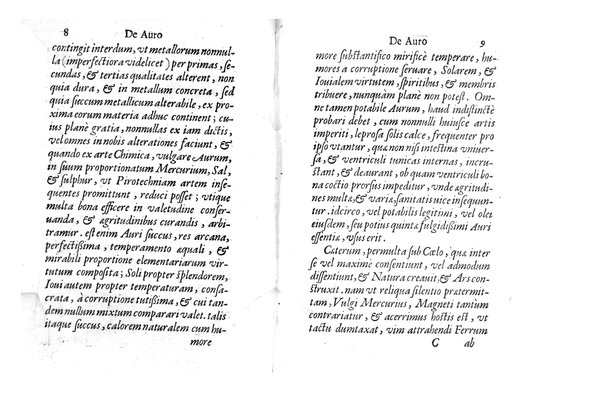 8 De Auro
contingit interdum, vt metallorum nonnul-
la (imperfectiora videlicet) per primas, se-
cundas, & tertias qualitates alterent, non
quia dura, & in metallum concreta, sed
quia succum metallicum alterabile, ex pro-
xima eorum materia adhuc continent; cu-
ius planè gratia, nonnullas ex iam dictis,
vel omnes in nobis alterationes faciunt, &
quando ex arte Chimica, vulgare Aurum,
in suum proportionatum Mercurium, Sal,
& sulphur, vt Pirotechniam artem inse-
quentes promittunt, reduci posset; vtique
multa bona efficere in valetudine conser-
uanda, & agritudinibus curandis, arbi-
tramur. est enim Auri succus, res arcana,
perfectissima, temperamento aquali, &
mirabili proportione elementariarum vir-
tutum composita; Soli propter splendorem,
Ioui autem propter temperaturam, consa-
crata, à corruptione tutissima, & cui tan-
dem nullum mixtum comparari valet. talis
itaque succus, calorem naturalem cum hu-
more
De Auro 9
more substantifico mirificè temperare, hu-
mores a corruptione seruare, Solarem, &
Iouialem virtutem, spiritibus, & membris
tribuere, nunquam planè non potest. Om-
ne tamen potabile Aurum, haud indistinctè
probari debet, cum nonnulli huiusce artis
imperiti, leprosa solis calce, frequenter pro
ipso vtantur, qua non nisi intestina vniuer-
sa, & ventriculi tunicas internas, incru-
stant, & deaurant, ob quam ventriculi bo-
na coctio prorsus impeditur, vnde agritudi-
nes multæ, & varia, sanitatis vice insequun-
tur. idcirco, vel potabilis legitimi, vel olei
eiusdem, seu potius quinta fulgidissimi Auri
essentiæ, vsus erit.
Cæterum, permulta sub Cœlo, quæ inter
se vel maximè consentiunt, vel admodum
dissentiunt, & Natura creauit, & Ars con-
struxit. nam vt reliqua silentio prætermit-
tam, Vulgi Mercurius, Magneti tantùm
contrariatur, & acerrimus hostis est, vt
tactu dumtaxat, vim attrahendi Ferrum
C ab